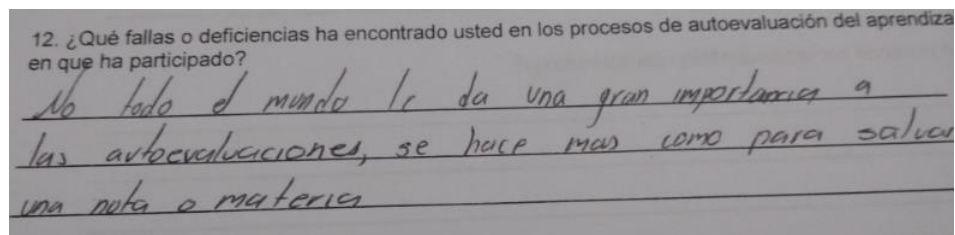 12. ¿Qué fallas o deficiencias ha encontrado usted en los procesos de autoevaluación del aprendiza
en que ha participado?
No todo el mundo le da una gran importancia a
las autoevaluaciones, se hace mas como para salvar
una nota o materia